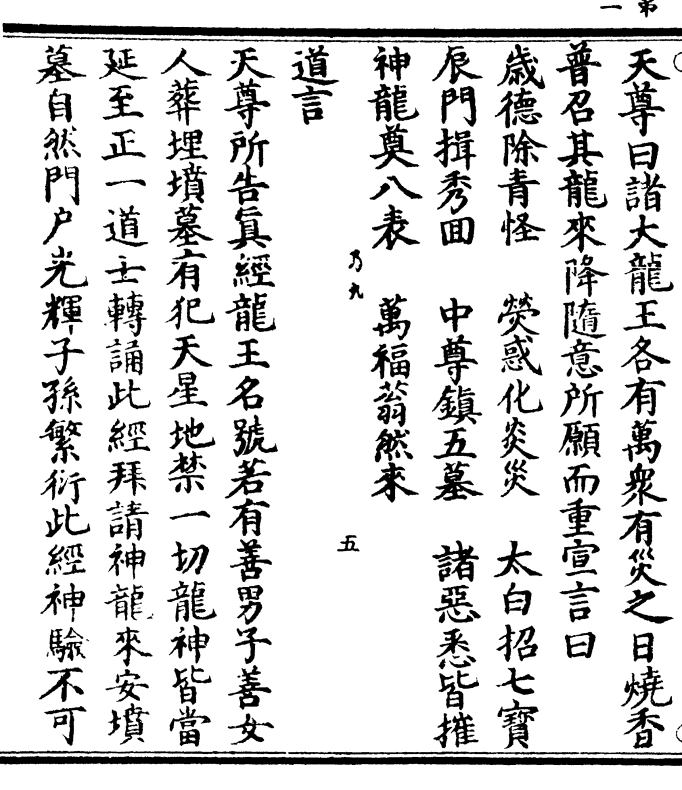 第一
天尊曰諸大龍王各有萬衆有災之日燒香
普召其龍來降隨意所願而重宣言曰
歲德除青怪 熒惑化炎災 太白招七寶
辰門揖秀回 中尊鎮五墓 諸惡悉皆摧
神龍奠八表 萬福蓊然來
乃九 五
道言
天尊所告眞經龍王名號若有善男子善女
人葬埋墳墓有犯天星地禁一切龍神皆當
延至正一道士轉誦此經拜請神龍來安墳
墓自然門户光輝子孫繁衍此經神驗不可